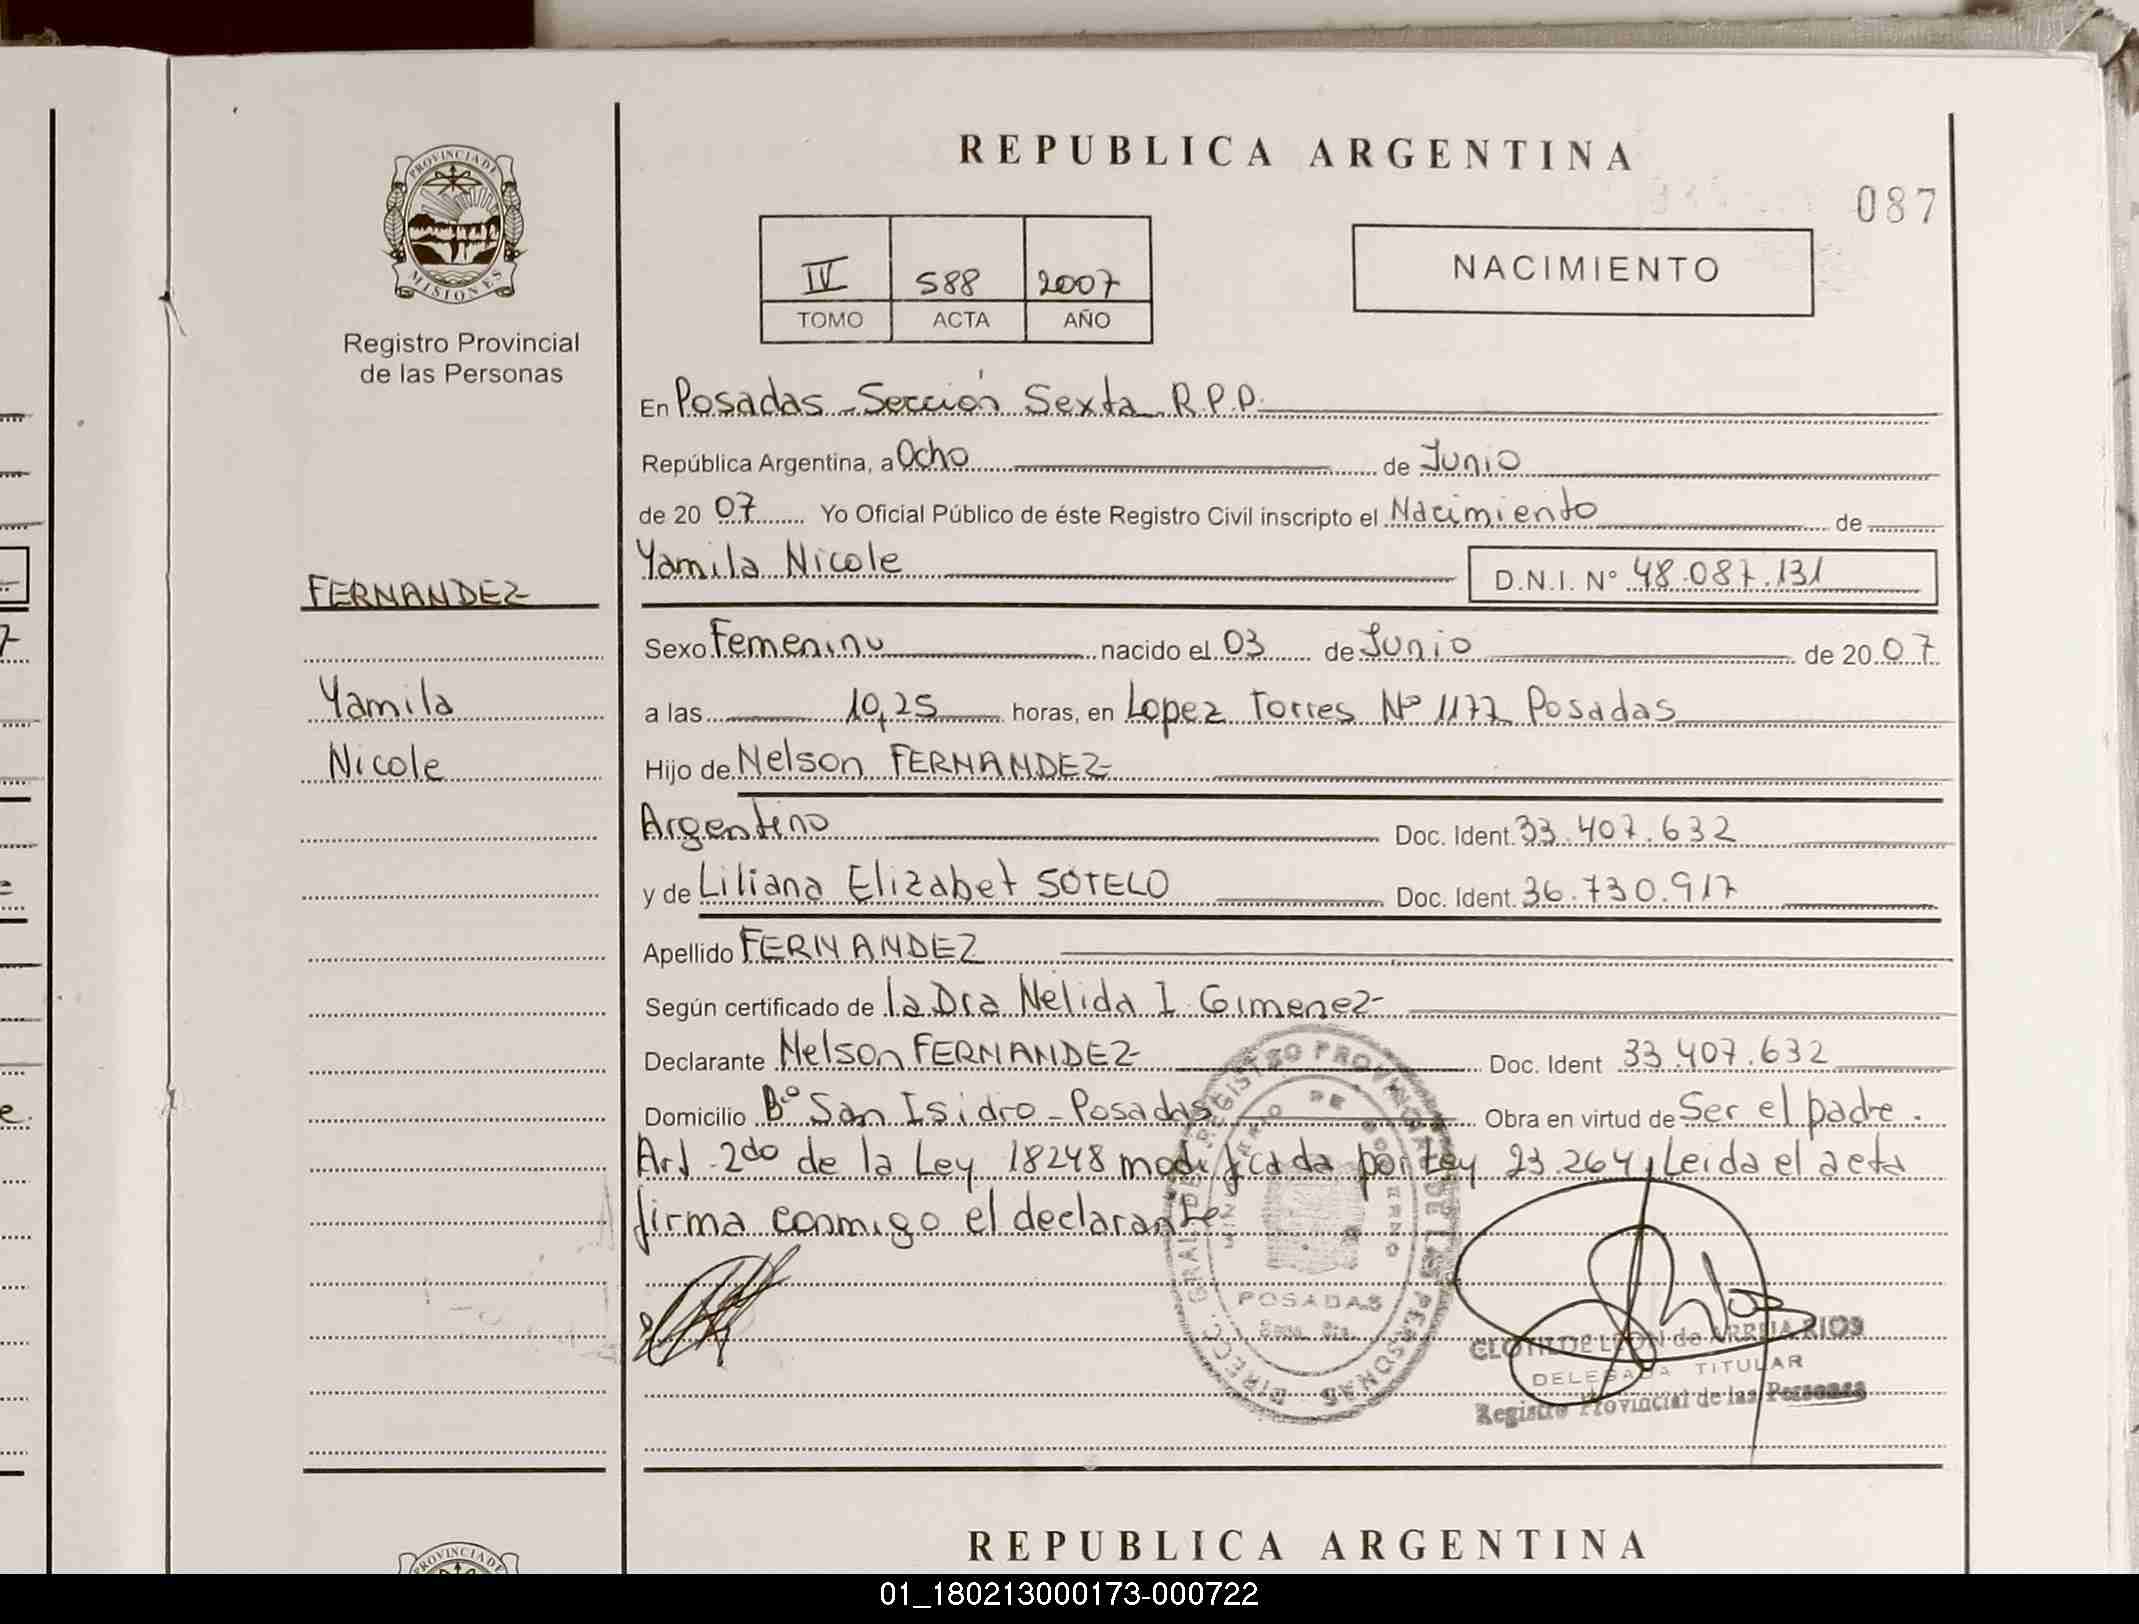 REPUBLICA ARGENTINA
087
PROVINCIA DE
MISIONES
Registro Provincial
de las Personas
IV 588 2007
TOMO ACTA AÑO
NACIMIENTO
En Posadas - Sección Sexta R.P.P.
República Argentina, a Ocho de Junio
de 20 07 Yo Oficial Público de éste Registro Civil inscripto el Nacimiento de
Yamila Nicole D.N.I. Nº 48.087.131
FERNANDEZ
Sexo Femenino nacido el 03 de Junio de 20 07
Yamila
a las 10,25 horas, en Lopez Torres Nº 1177 Posadas
Nicole
Hijo de Nelson FERNANDEZ
Argentino Doc. Ident. 33.407.632
y de Liliana Elizabet SOTELO Doc. Ident. 36.730.917
Apellido FERNANDEZ
Según certificado de la Dra Nelida I. Gimenez
Declarante Nelson FERNANDEZ Doc. Ident 33.407.632
Domicilio Bº San Isidro - Posadas Obra en virtud de Ser el padre.
Art 2do de la Ley 18248 modificada por Ley 23.264, Leida el acta
firma conmigo el declarante
DIRECC. GRAL DE REGISTRO PROVINCIAL DE LAS PERSONAS
MINISTERIO DE GOBIERNO
POSADAS
CLOTILDE LEON de ARRUA RIOS
DELEGADA TITULAR
Registro Provincial de las Personas
REPUBLICA ARGENTINA
PROVINCIA DE
01_180213000173-000722